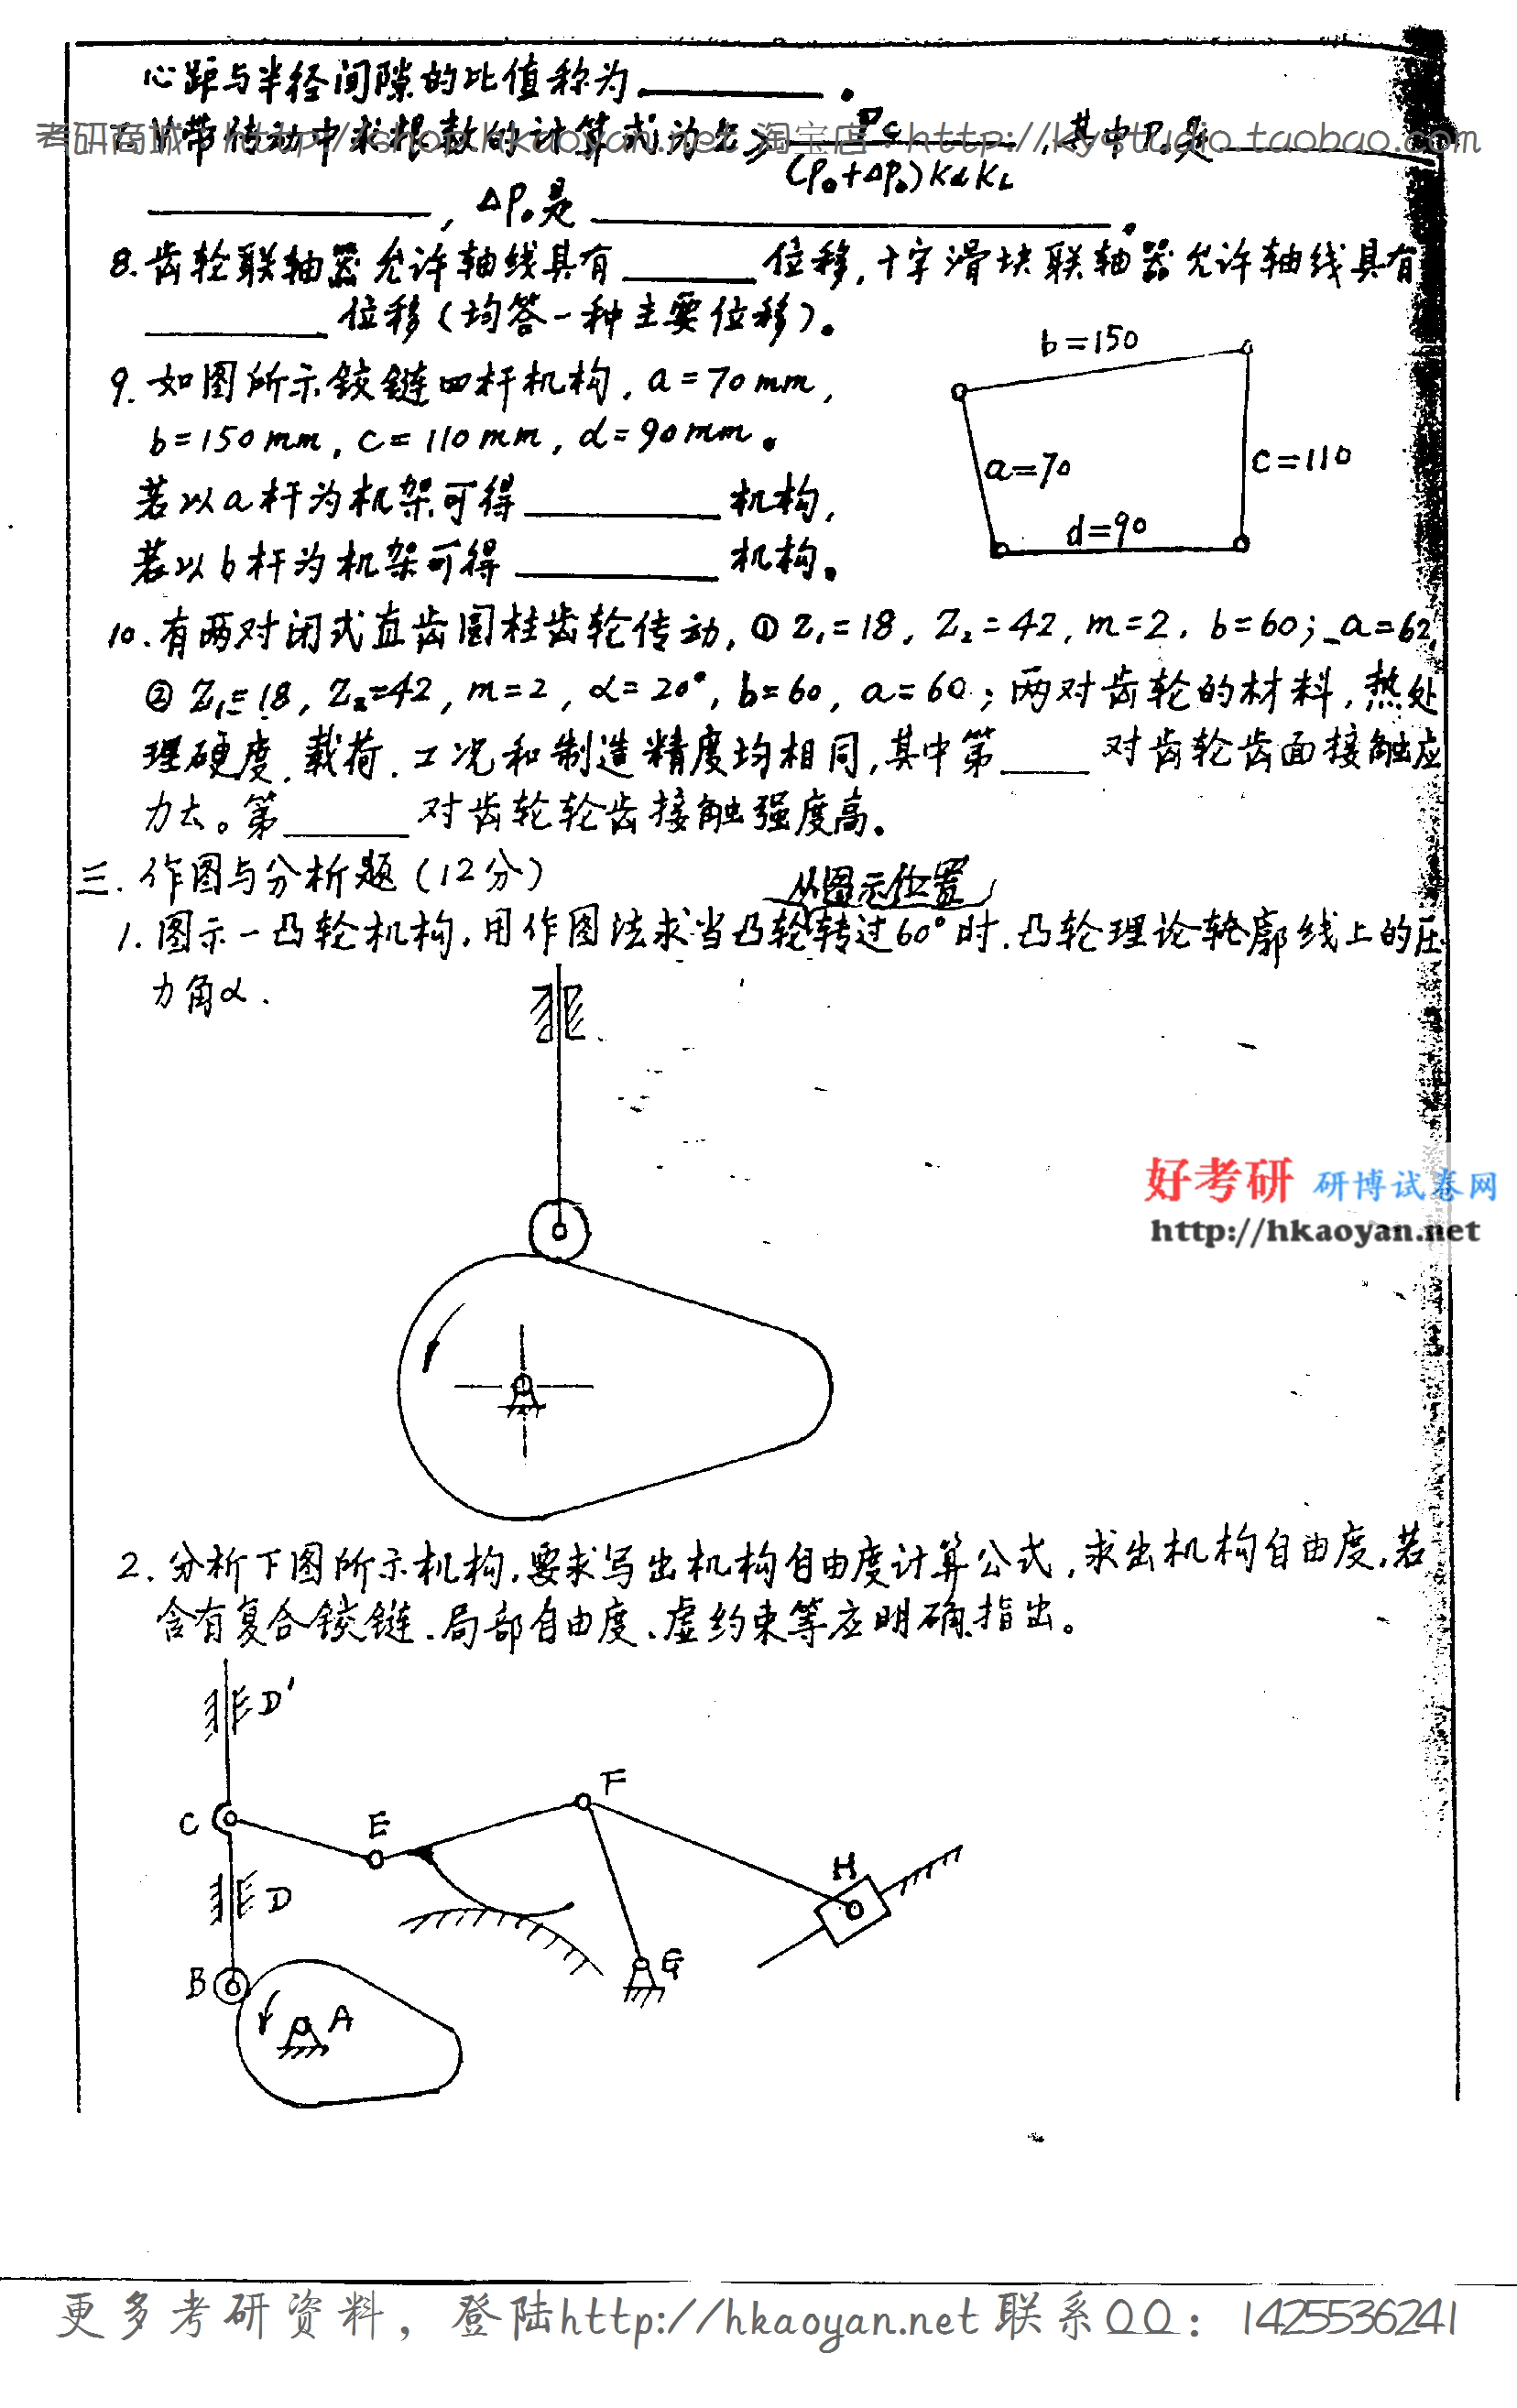 心距与半径间隙的比值称为________。
考研商城 http://shop.hkaoyan.net 淘宝店:http://kystudio.taobao.com
7. V带传动中求根数的计算式为 Z ≥ Pc/((P₀+ΔP₀)KαKL),其中P₀是________
________,ΔP₀是________________。
8. 齿轮联轴器允许轴线具有______位移,十字滑块联轴器允许轴线具有
________位移(均答一种主要位移)。
9. 如图所示铰链四杆机构,a=70mm,
b=150mm,c=110mm,d=90mm。
若以a杆为机架可得________机构,
若以b杆为机架可得________机构。
b=150
a=70
c=110
d=90
10. 有两对闭式直齿圆柱齿轮传动,① Z₁=18,Z₂=42,m=2,b=60;a=62,
② Z₁=18,Z₂=42,m=2,α=20°,b=60,a=60;两对齿轮的材料,热处
理硬度,载荷,工况和制造精度均相同,其中第____对齿轮齿面接触应
力大。第______对齿轮轮齿接触强度高。
三. 作图与分析题(12分)
从图示位置
1. 图示一凸轮机构,用作图法求当凸轮转过60°时,凸轮理论轮廓线上的压
力角α.
好考研 研博试卷网
http://hkaoyan.net
2. 分析下图所示机构,要求写出机构自由度计算公式,求出机构自由度,若
含有复合铰链、局部自由度、虚约束等应明确指出。
D'
F
C
E
H
D
G
B
A
更多考研资料,登陆http://hkaoyan.net 联系QQ:1425536241